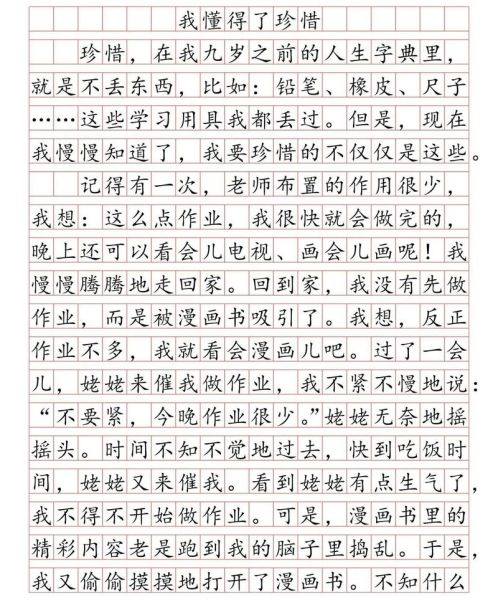 我懂得了珍惜
珍惜，在我九岁之前的人生字典里，
就是不丢东西，比如：铅笔、橡皮、尺子
……这些学习用具我都丢过。但是，现在
我慢慢知道了，我要珍惜的不仅仅是这些。
记得有一次，老师布置的作用很少，
我想：这么点作业，我很快就会做完的，
晚上还可以看会儿电视、画会儿画呢！我
慢慢腾腾地走回家。回到家，我没有先做
作业，而是被漫画书吸引了。我想，反正
作业不多，我就看会漫画儿吧。过了一会
儿，姥姥来催我做作业，我不紧不慢地说：
“不要紧，今晚作业很少。”姥姥无奈地摇
摇头。时间不知不觉地过去，快到吃饭时
间，姥姥又来催我。看到姥姥有点生气了，
我不得不开始做作业。可是，漫画书里的
精彩内容老是跑到我的脑子里捣乱。于是，
我又偷偷摸摸地打开了漫画书。不知什么